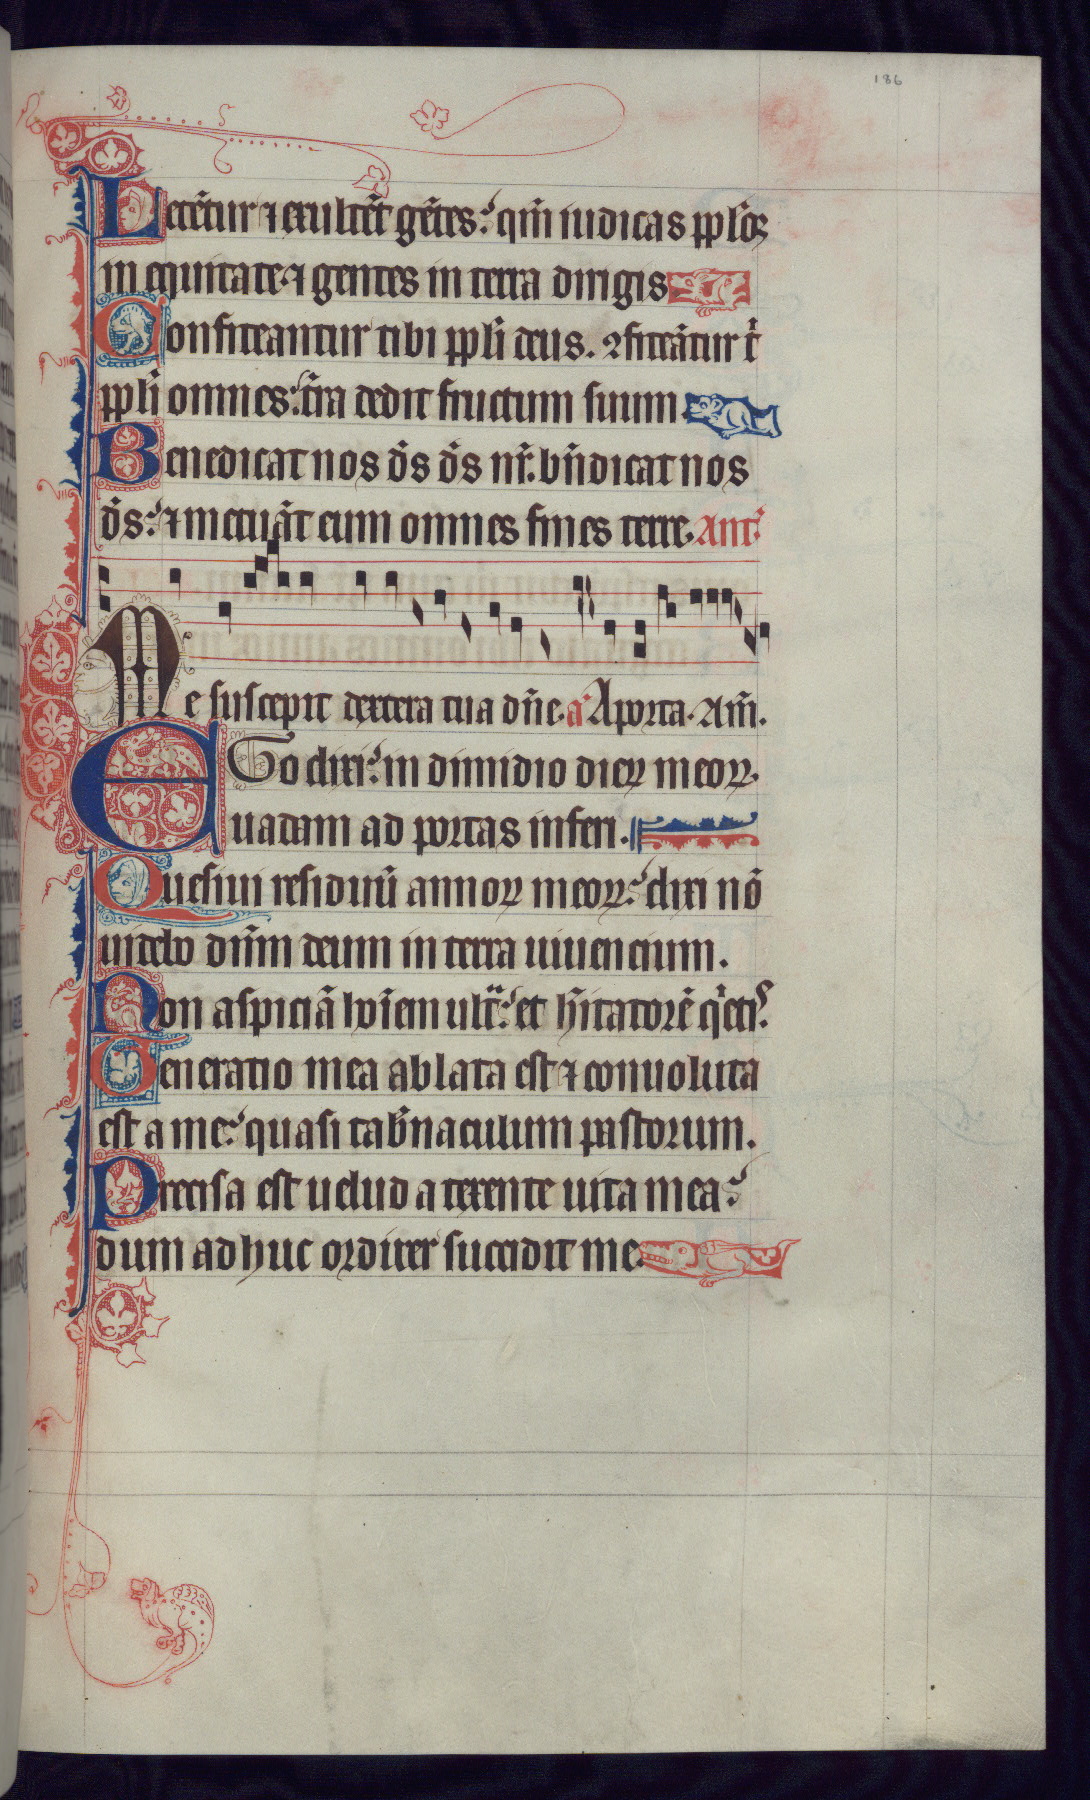 186
Letēt̄ur ⁊ exultēt gētes: qm̄ iudicas ppl̄os
in equitate ⁊ gentes in terra dirigis
Confiteantur tibi ppl̄i deus. ꝯfiteāt̄ur t̄
ppl̄i omnes: t̄ra dedit fructum suum
Benedicat nos d̄s d̄s nr̄. bn̄dicat nos
d̄s: ⁊ metuāt eum omnes fines terre. Ant̄
Me suscepit dextera tua dn̄e. a Aporta. Am̄.
EGo dixi: in dimidio dieꝝ meoꝝ.
uadam ad portas inferi.
Quesiui residuū annoꝝ meoꝝ: dixi nō
uidebo dn̄m deum in terra uiuencium.
Non aspiciā hoīem ult̄: et hītatorē q̄etis
Generatio mea ablata est ⁊ conuoluta
est a me: quasi tab̄naculum pastorum.
Precisa est uelud a texente uita mea:
dum adhuc ordirer succidit me.